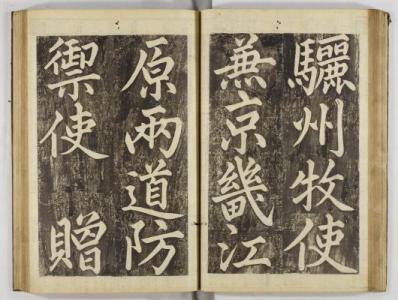 驪州牧使
兼京畿江
原兩道防
禦使贈